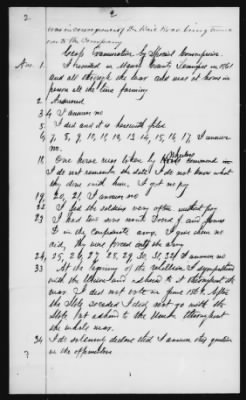 2
2
was in consequence of the Rail Road being turned
over to the Company
Cross Examination by Special Commissioner.
Ans. 1. I resided in County Tennessee in 1861
and all through the war and was at home in
person all the time farming
2 Answered
3, 4 I answer no
5 I did and it is herewith filed
6, 7, 8, 9, 10, 11, 12, 13, 14, 15, 16, 17, I answer
no.
18 One horse was taken by command
I do not remember the date I do not know what
they done with him, I got no pay
19, 20, 21, I answer no
22 I fed the soldiers very often without pay
23 I had two sons
in the confederate army. I gave them no
aid, they were forced into the army
24, 25, 26, 27, 28, 29, 30, 31, 32 I answer no
33 At the beginning of the rebellion I sympathized
with the Union and adhered to it throughout the
war. I did not vote in June 1861. After
the State seceded I did not go with the
State but adhered to the Union throughout
the whole war.
34 I do solemnly declare that I answer this question
in the affirmative